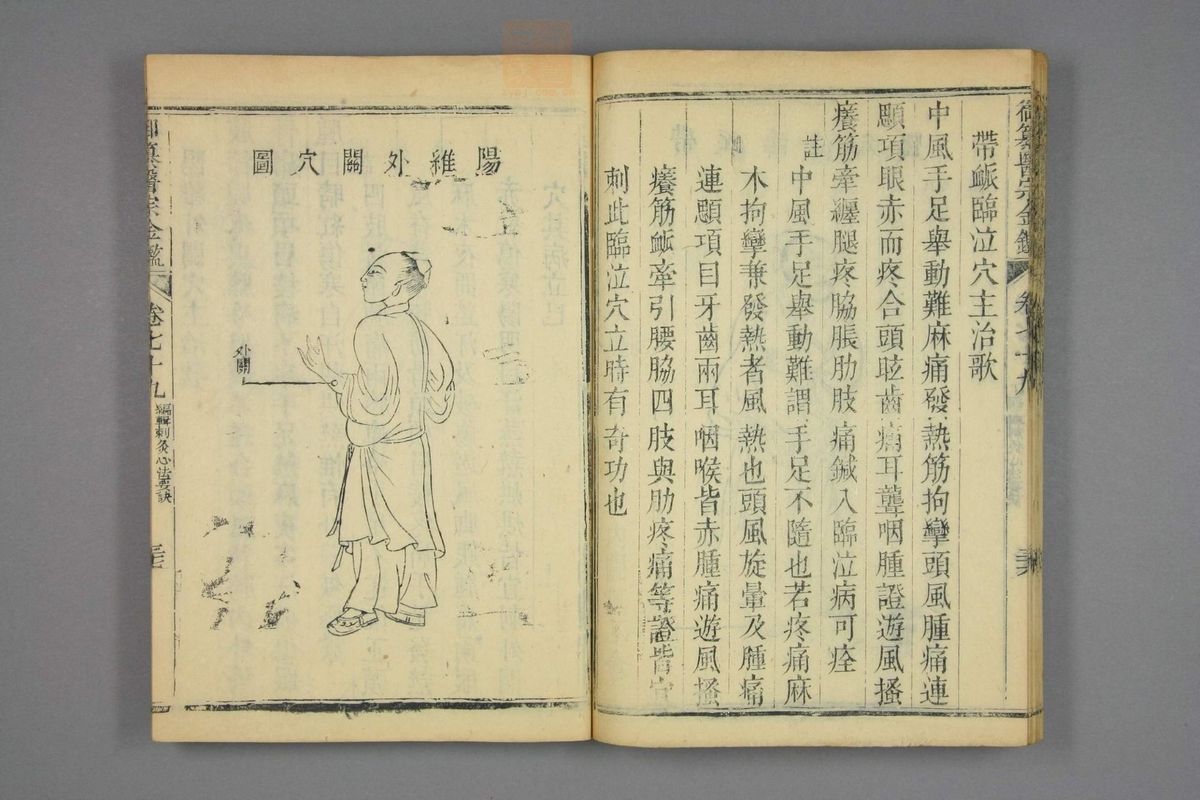 御纂醫宗金鑑 卷七十九
帶䘑臨泣穴主治歌
中風手足舉動難麻痛發熱筋拘攣頭風腫痛連
顋項眼赤而疼合頭眩齒痛耳聾咽腫證遊風搔
癢筋牽纏腿疼脇脹肋肢痛鍼入臨泣病可痊
註
中風手足舉動難謂手足不隨也若疼痛麻
木拘攣兼發熱者風熱也頭風旋暈及腫痛
連顋項目牙齒兩耳咽喉皆赤腫痛遊風搔
癢筋䘑牽引腰脇四肢與肋疼痛等證皆宜
刺此臨泣穴立時有奇功也
陽維外關穴圖
外關
御纂醫宗金鑑 卷七十九 編輯刺灸心法要訣